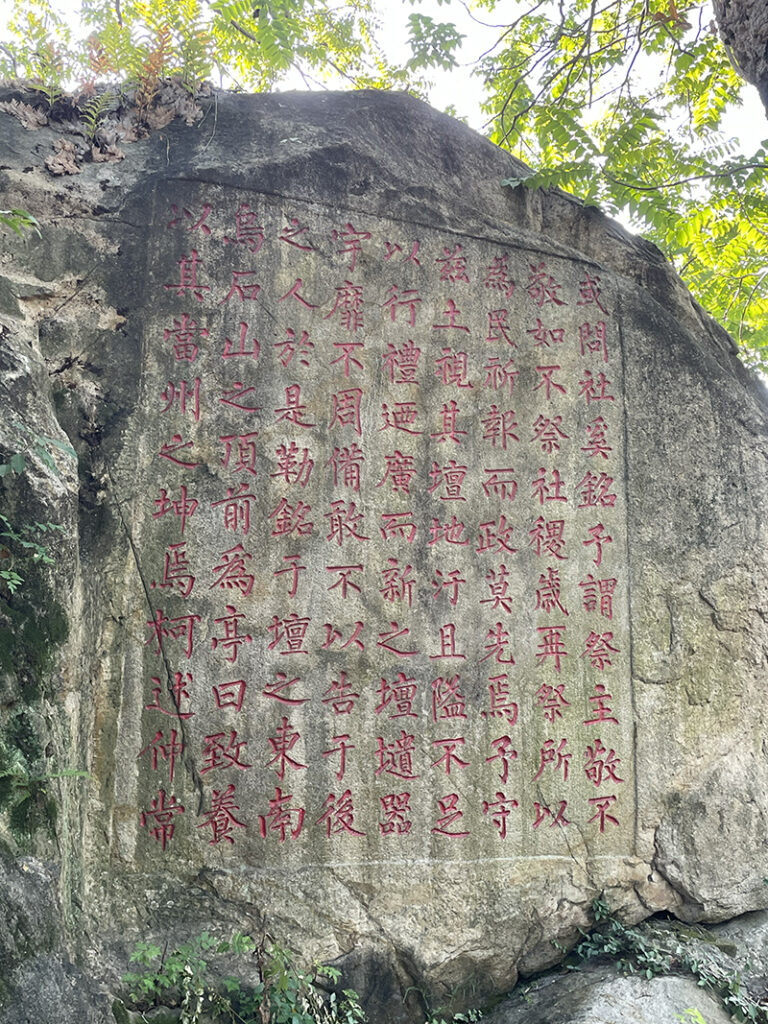 或問社奚銘予謂祭主敬不
敬如不祭社稷歲再祭所以
為民祈報而政莫先焉予守
兹土視其壇地汙且隘不足
以行禮迺廣而新之壇壝器
宇靡不周備敢不以告于後
之人於是勒銘于壇之東南
烏石山之頂前爲亭曰致養
以其當州之坤焉柯述仲常